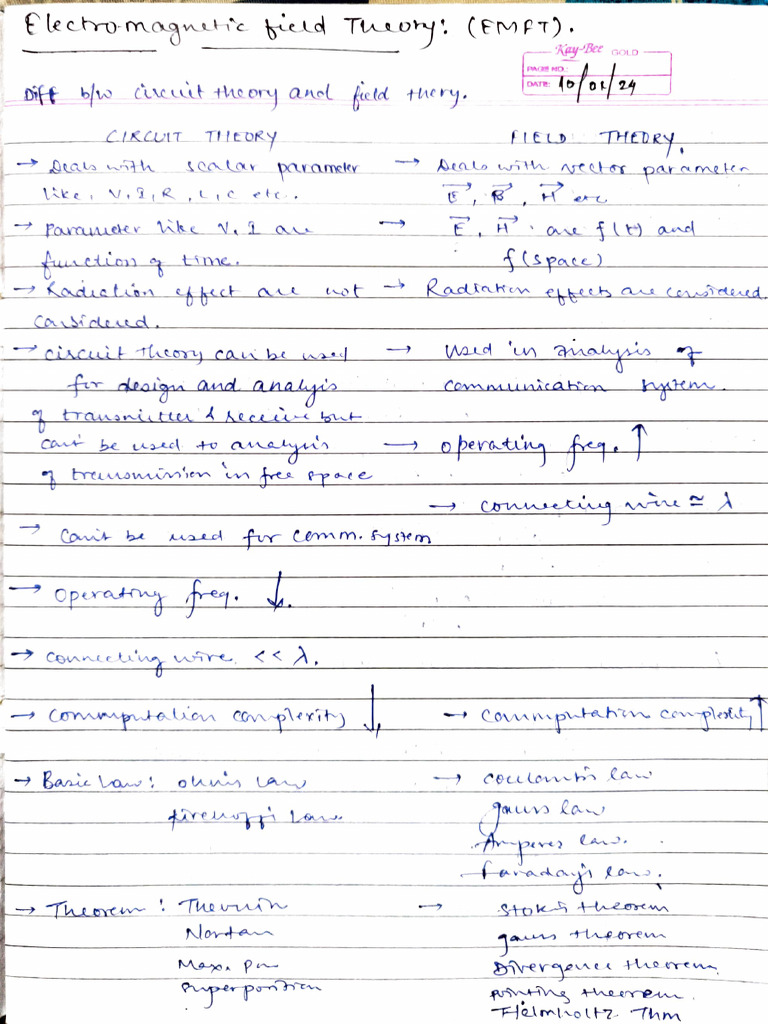 Electromagnetic field Theory: (EMFT).
Kay-Bee GOLD
PAGE NO.:
DATE: 10/01/24
Diff b/w circuit theory and field theory.
CIRCUIT THEORY
→ Deals with scalar parameter
like, V, I, R, L, C etc.
→ Parameter like V, I are
function of time.
→ Radiation effect are not
considered.
→ circuit theory can be used
for design and analysis
of transmitter & receive but
can't be used to analysis
of transmission in free space
→ can't be used for comm. system
→ operating freq. ↓.
→ connecting wire << λ.
→ commputation complexity ↓
→ Basic Law: ohm's law
Kirchoff's Law
→ Theorem: Thevnin
Nortan
Max. Pow
superposition
FIELD THEORY.
→ Deals with vector parameter
E⃗, B⃗, H⃗ etc
→ E⃗, H⃗ are f(t) and
f(space)
→ Radiation effects are considered.
→ used in analysis of
communication system.
→ operating freq. ↑
→ connecting wire ≃ λ
→ commputation complexity ↑
→ coulomb's law
gauss law
Amperes law.
faraday's law.
→ Stoke's theorem
gauss theorem
Divergence theorem
pointing theorem.
Helmholtz Thm